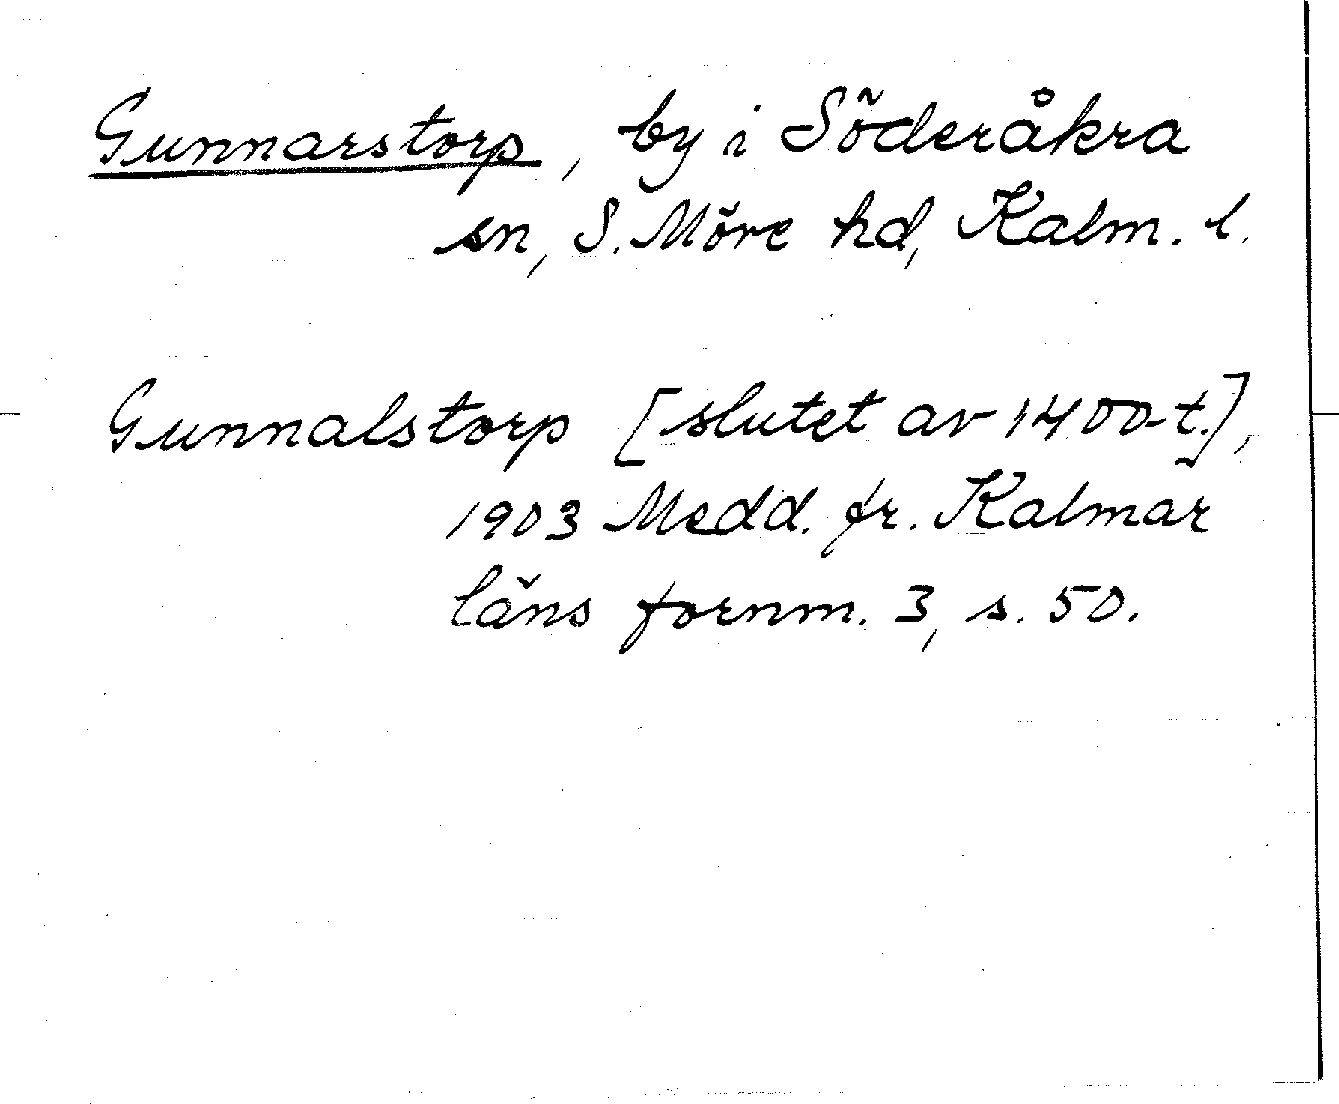 Gunnarstorp, by i Söderåkra
sn, S. Möre hd, Kalm. l.
Gunnalstorp [slutet av 1400-t.],
1903 Medd. fr. Kalmar
läns fornm. 3, s. 50.